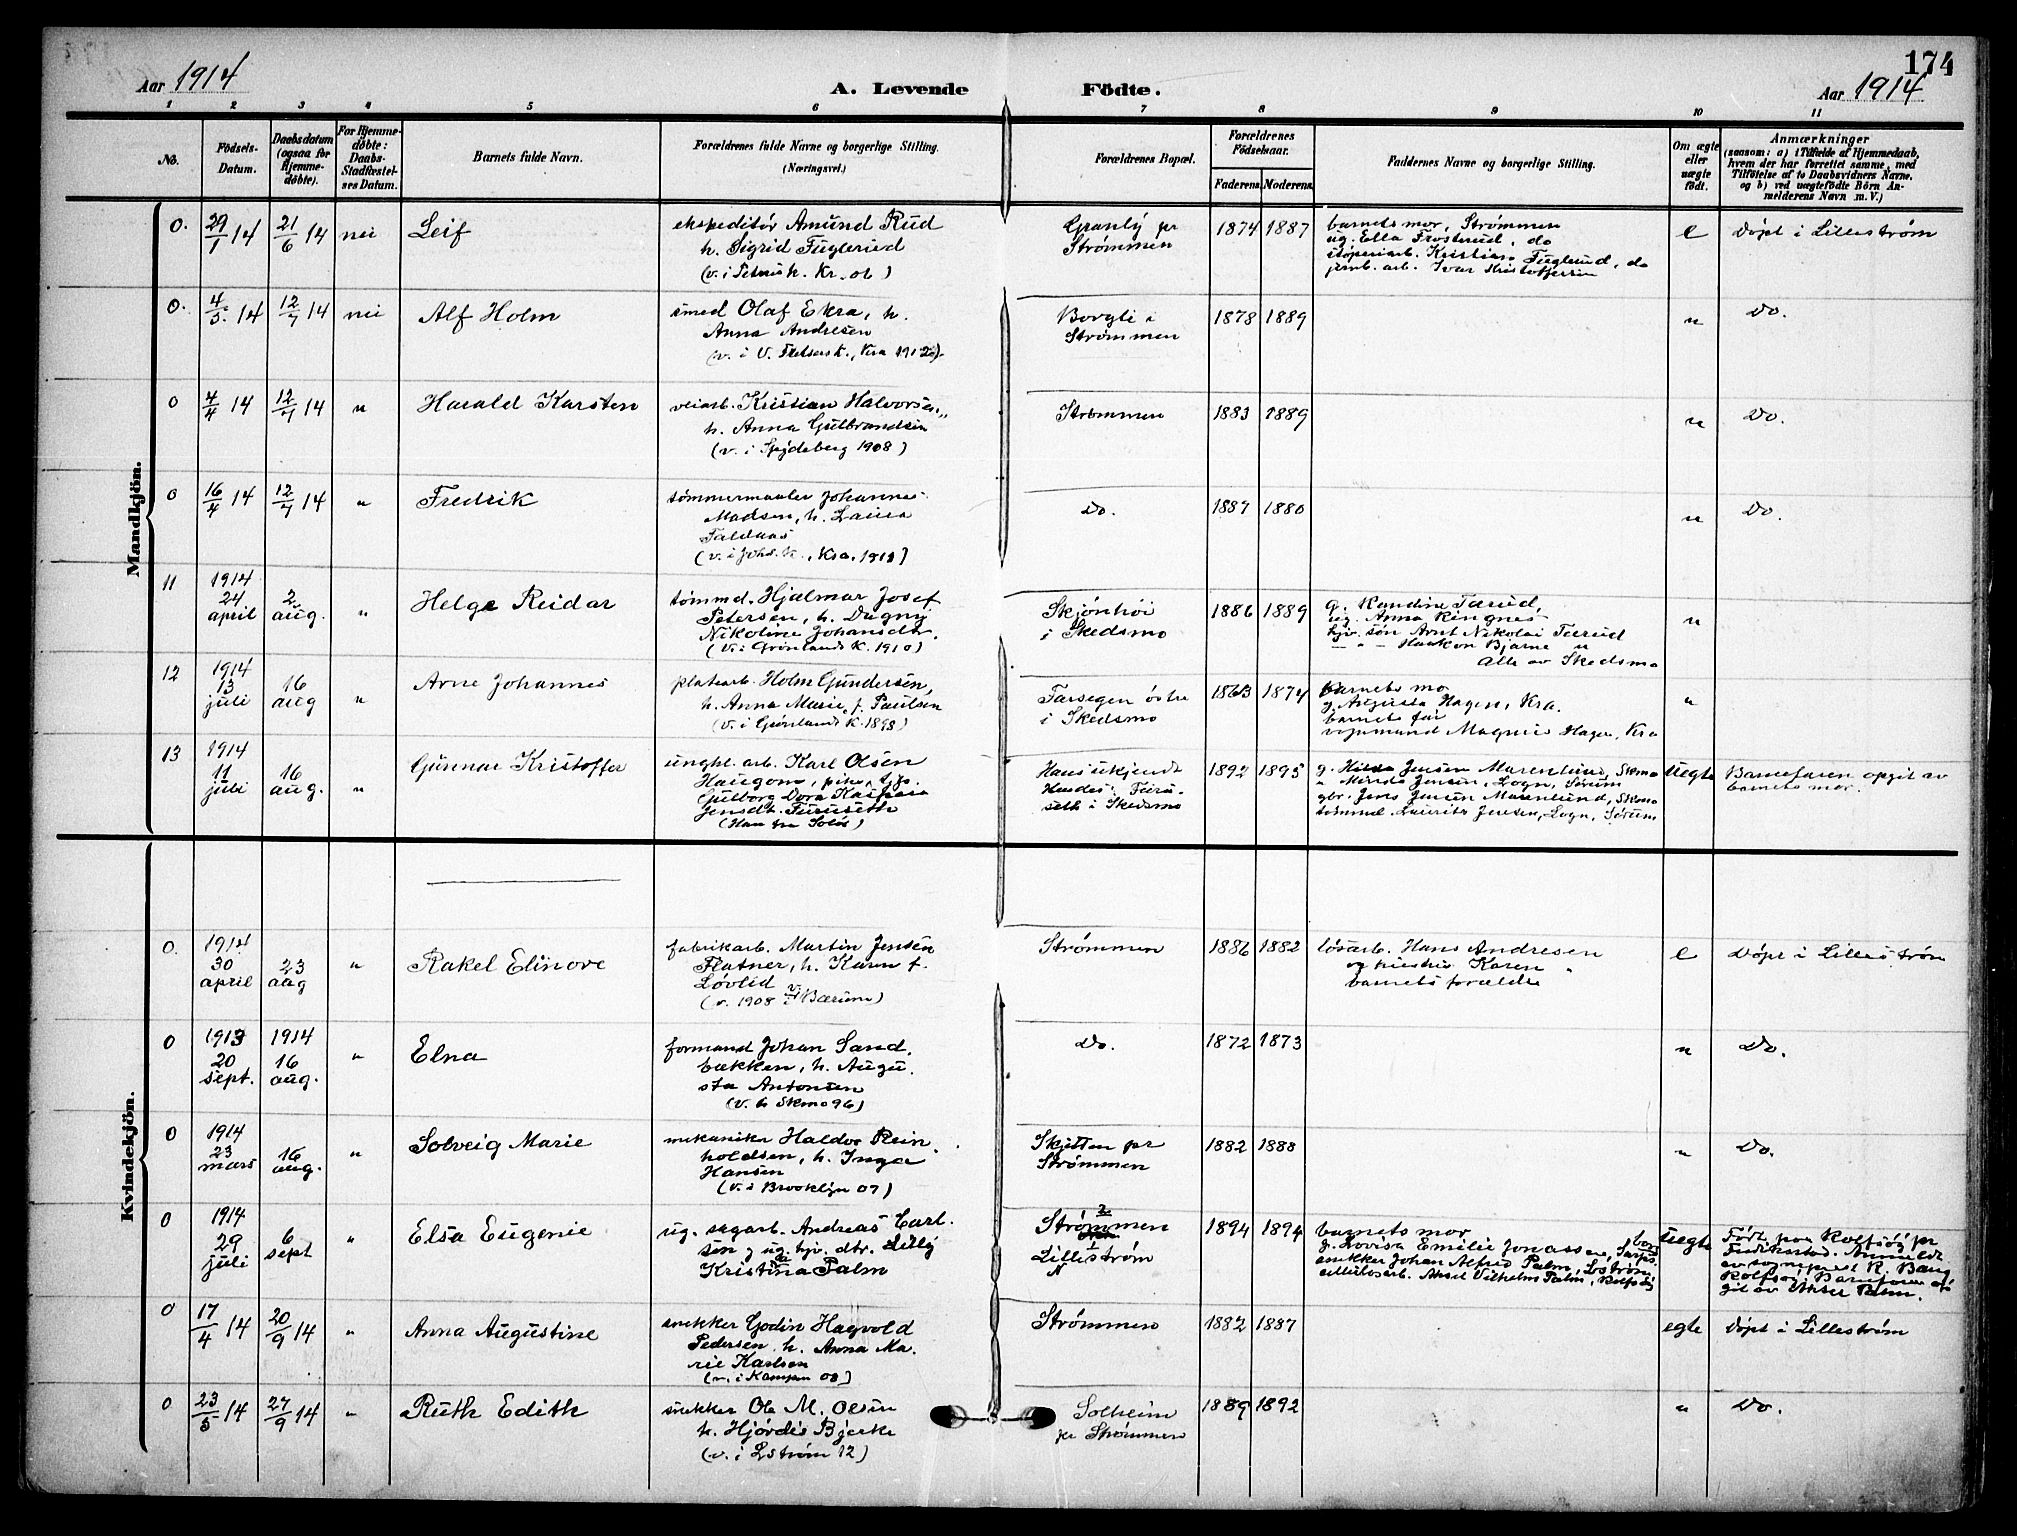 174
Aar 1914
A. Levende Födte.
Aar 1914
1 2 3 4 5 6 7 8 9 10 11
No.
Födsels-
Datum.
Daabsdatum
(ogsaa for
Hjemme-
döbte).
For Hjemme-
döbte:
Daabs-
Stadfæstel-
ses Datum.
Barnets fulde Navn.
Forældrenes fulde Navne og borgerlige Stilling.
(Næringsvei.)
Forældrenes Bopæl.
Forældrenes
Födselsaar.
Faderens. Moderens.
Faddernes Navne og borgerlige Stilling.
Om ægte
eller
uægte
födt.
Anmærkninger
(saasom: a) i Tilfælde af Hjemmedaab,
hvem der har forrettet samme, med
Tilföielse af to Daabsvidners Navne,
og b) ved uægtefödte Börn An-
melderens Navn m. V.)
Mandkjön.
0. 29/1 14 21/6 14 nei Leif
ekspeditør Amund Rud
h. Sigrid Fuglerud
(v. i Petrusk. Kr. 06)
Granly pr
Strømmen
1874 1887
barnets mor, Strømmen
ug. Ella Frosterud, do
støperiarb. Kristian Fuglerud, do
jernb. arb. Ivar Kristoffersen
e Døpt i Lillestrøm
0. 4/5 14 12/7 14 nei Alf Holm
smed Olaf Ekra, h.
Anna Andresen
Strømmen
1878 1889
" Do.
0 4/4 14 12/7 14 " Harald Karsten
veiarb. Kristian Halvorsen,
h. Anna Gulbrandsen
(v. i Spydeberg 1908)
Strømmen
1883 1889
" Do.
0 16/4 14 12/7 14 " Fredrik
tømmermaaler Johannes
Madsen, h. Laura
Do.
1887 1880
" Do.
11 1914
24
april
2
aug.
" Helge Reidar
tømmd. Hjalmar Josef
Petersen, h. Dagny
Nikoline Johansdtr.
(v. i Grønlands K. 1910)
Skjønhøi
i Skedsmo
1886 1889
g. Kandine Tærud,
ug. Anna Ringnes
hjv. søn Arnt Nikolai Tærud
— " — Haakon Bjarne "
Alle av Skedsmo
"
12 1914
13
juli
16
aug
" Arne Johannes
platearb. Holm Gundersen,
h. Anna Marie f. Paulsen
(v. i Grønlands K. 1898)
Farsegen østre
i Skedsmo
1863 1874
barnets mo
g. Augusta Hagen, Kra.
barnets far
vognmand Magnus Hagen, Kra
"
13 1914
11
juli
16
aug.
" Gunnar Kristoffer
ungkl. arb. Karl Olsen
Haugom, pike, tjs.
Gulborg Dora Kaspara
Jensdt. Furuseth
(Han fra Solør)
Hans ukjendt
Hendes: Furu-
seth i Skedsmo
1892 1895
g. Hilda Jensen Marenlund, Skmo
" Minda Jensen, Logn, Sørum
gbr. Jens Jensen Marenlund, Skmo
tømmd. Laurits Jensen, Logn, Sørum
uegte
Barnefaren opgit av
barnets mor.
Kvindekjön.
0. 1914
30
april
23
aug
" Rakel Elinove
fabrikarb. Martin Jensen
Flatner, h. Karen f.
Løvlid
(v. 1908 i V. Bærum)
Strømmen
1886 1882
løsarb. Hans Andresen
og hustru Karen "
barnets forældre
e Døpt i Lillestrøm
0 1913
20
sept.
1914
16
aug.
" Elna
formand Johan Sand.
bækken, h. Augu.
sta Antonsen
(v. h Skmo 96)
Do.
1872 1873
" Do.
0 1914
23
mars
16
aug.
" Solveig Marie
mekaniker Haldor Rein
holdsen, h. Inga
Hansen
(v. i Brooklyn 07)
Skjetten pr
Strømmen
1882 1888
" Do.
0 1914
29
juli
6
sept
" Elsa Eugenie
ug. sagarb. Andreas Carl.
sen og ug. hjv. dtr. Lilly
Kristina Palm
Strømmen
Lillestrøm
1894 1894
barnets mor
g. Lovisa Emilie Jonassen, Sarps.
borg
snekker Johan Alfred Palm, Lstrøm
cellulosarb. Aksel Vilhelm Palm, Rolfsøy
uegte
Født paa Rolfsøy pr
Fredrikstad. Anmeldt
av sogneprest R. Bang
Rolfsøy. Barnefaren op
git av Aksel Palm.
0 17/4 14 20/9 14 " Anna Augustine
snekker Godin Hagvold
Pedersen h. Anna Ma.
rie Karlsen
(v. i Kampen 08)
Strømmen
1882 1887
egte Døpt i Lillestrøm
0 23/5 14 27/9 14 " Ruth Edith
snekker Ole M. Olsen
h. Hjørdis Bjerke
(v. i Lstrøm 12)
Solheim
pr Strømmen
1889 1892
" Do.